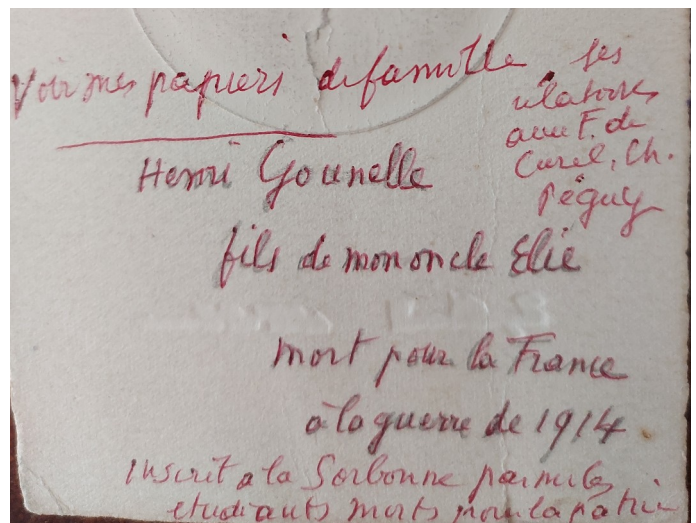 Voir mes papiers de famille
ses
relations
avec F. de
Curel, Ch.
Péguy
Henri Gounelle
fils de mon oncle Elie
mort pour la France
à la guerre de 1914
inscrit a la Sorbonne parmi les
etudiants morts pour la patrie